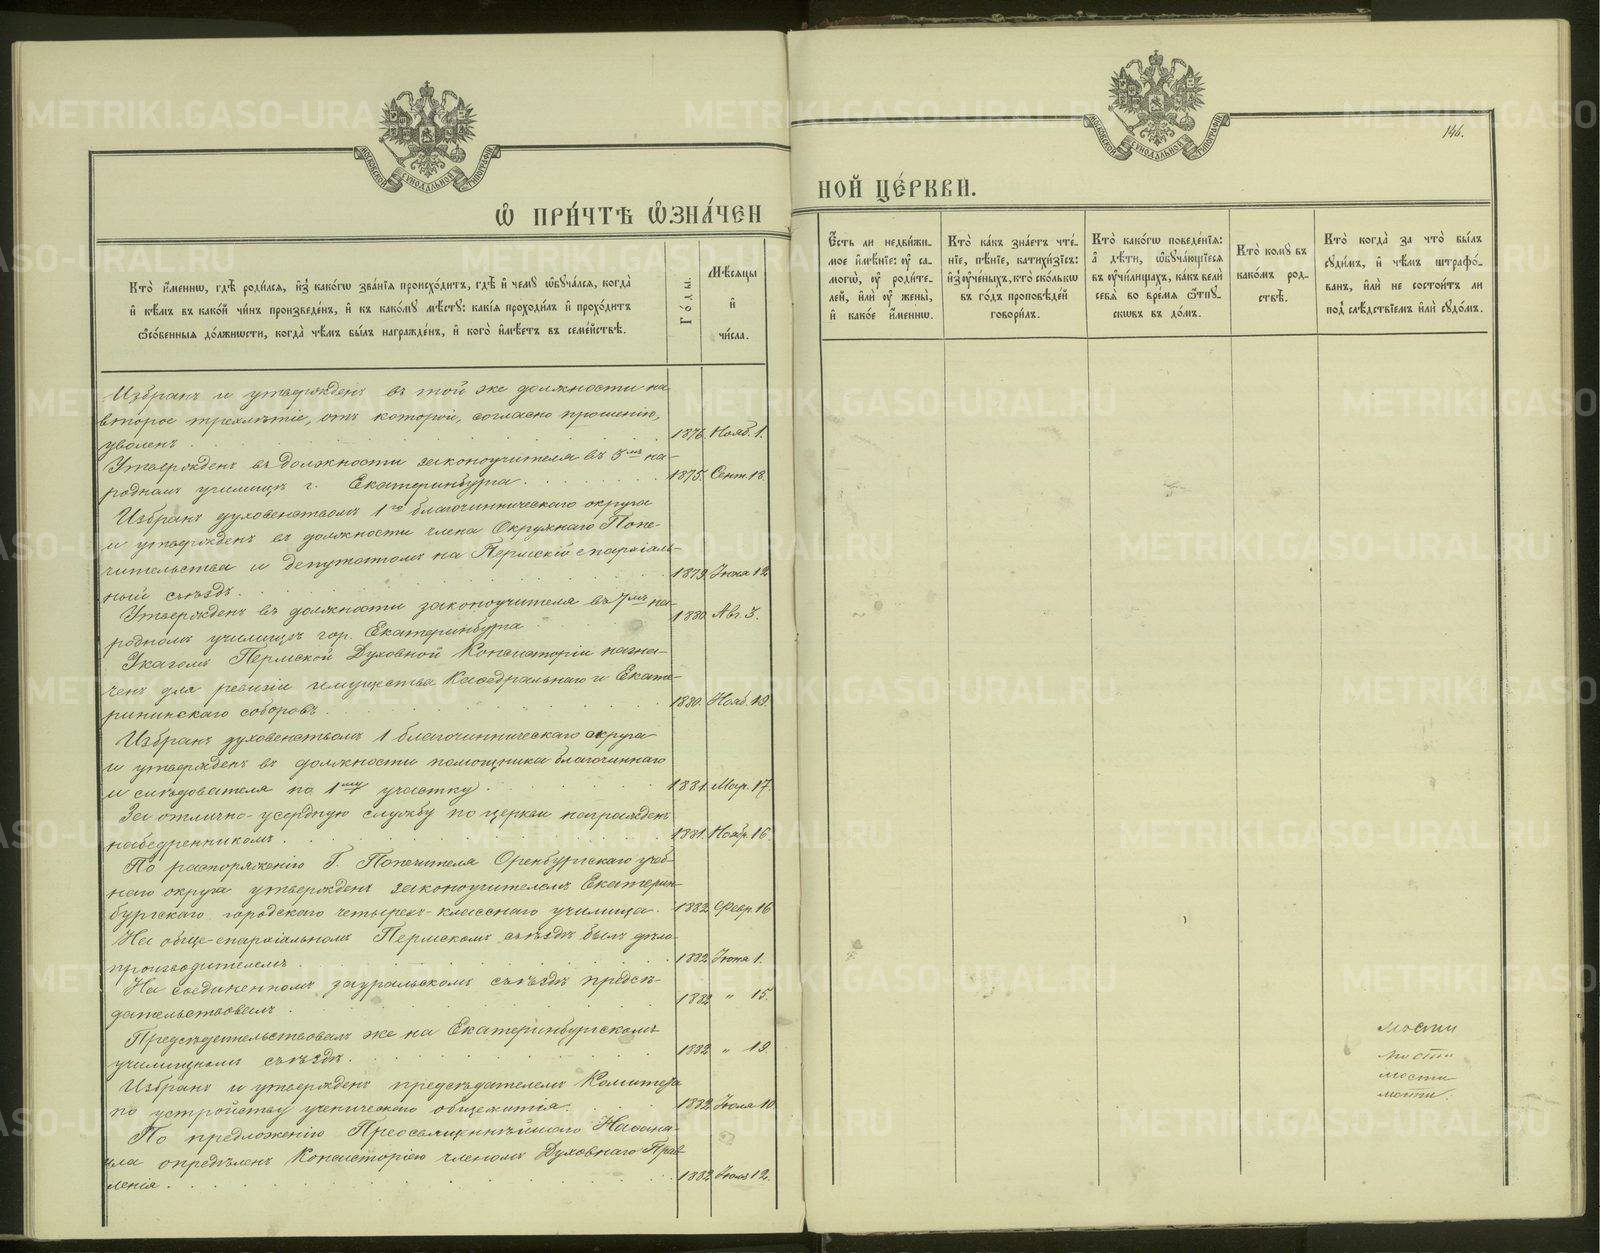 МОСКОВСКОЙ СУНОДАЛЬНОЙ ТИПОГРАФІИ
Ѡ ПРИ́ЧТѢ Ѡ҆ЗНА́ЧЕН
Кто̀ и҆́меннѡ, гдѣ̀ роди́лсѧ, и҆з̾ како́гѡ зва́нїѧ происхо́дитъ, гдѣ̀ и҆ чемꙋ̀ ѡ҆бꙋча́лсѧ, когда̀
и҆ кѣ́мъ въ како́й чи́нъ произведе́нъ, и҆ къ како́мꙋ мѣ́стꙋ: какі̑ѧ проходи́лъ и҆ прохо́дитъ
ѻ҆со́бенныѧ до́лжности, когда̀ чѣ́мъ бы́лъ награжде́нъ, и҆ кого̀ и҆мѣ́етъ въ семе́йствѣ.
Го́ды.
Мѣ́сѧцы
и҆
чи́сла.
Избранъ и утвержденъ въ той же должности на
второе трехлѣтіе, отъ которой, согласно прошенію,
уволенъ . . . 1876. Нояб. 1.
Утвержденъ въ должности законоучителя въ 3мъ на-
родномъ училищѣ г. Екатеринбурга . . . 1875. Сент. 18.
Избранъ духовенствомъ 1го благочинническаго округа
и утвержденъ въ должности члена Окружнаго Попе-
чительства и депутатомъ на Пермскій епархіаль-
ный съѣздъ . . . 1879. Іюня 12
Утвержденъ въ должности законоучителя въ 7мъ на-
родномъ училищѣ гор. Екатеринбурга . . . 1880. Авг. 3.
Указомъ Пермской Духовной Консисторіи назна-
ченъ для ревизіи имущества Каѳедральнаго и Екате-
рининскаго соборовъ . . . 1880. Нояб. 19.
Избранъ духовенствомъ 1 благочинническаго округа
и утвержденъ въ должности помощника благочиннаго
и слѣдователя по 1му участку . . . 1881. Мар. 17.
За отлично-усердную службу по церкви награжденъ
набедренникомъ . . . 1881. Ноябр. 16
По распоряженію Г. Попечителя Оренбургскаго учеб-
наго округа утвержденъ законоучителемъ Екатерин-
бургскаго городскаго четырехъ-класснаго училища . 1882 Февр. 16
На обще-епархіальномъ Пермскомъ съѣздѣ былъ дѣло-
производителемъ . . . 1882 Іюня 1.
На соединенномъ зауральскомъ съѣздѣ предсѣ-
дательствовалъ . . . 1882 " 15.
Предсѣдательствовалъ же на Екатеринбургскомъ
училищномъ съѣздѣ . . . 1882 " 19.
Избранъ и утвержденъ предсѣдателемъ Комитета
по устройству ученическаго общежитія . . . 1882 Іюля 10.
По предложенію Преосвященнѣйшаго Наѳана-
ила опредѣленъ Консисторіею членомъ Духовнаго Прав-
ленія . . . 1882 Іюля 12.
146.
МОСКОВСКОЙ СУНОДАЛЬНОЙ ТИПОГРАФІИ
НОЙ ЦЕ́РКВИ.
Є҆́сть ли недви́жи-
мое и҆мѣ́нїе: ᲂу҆ са-
могѡ̀, ᲂу҆ роди́те-
лей, и҆лѝ ᲂу҆ жены̀,
и҆ како́е и҆́меннѡ.
Кто̀ ка́къ зна́етъ чте́-
нїе, пѣ́нїе, катихи́зїсъ:
и҆з̾ ᲂу҆че́ныхъ, кто̀ ско́лькѡ
въ го́дъ проповѣ́дей
говори́лъ.
Кто̀ како́гѡ поведе́нїѧ:
а҆ дѣ́ти, ѡ҆бꙋча́ющїесѧ
въ ᲂу҆чи́лищахъ, ка́къ велѝ
себѧ̀ во вре́мѧ ѿпꙋ-
скѡвъ въ до́м.
Кто̀ комꙋ̀ въ
како́мъ род-
ствѣ̀.
Кто̀ когда̀ за что̀ бы́лъ
сꙋди́мъ, и҆ чѣ́мъ штрафо́-
ванъ, и҆лѝ не состои́тъ ли
под̾ слѣ́дствїемъ и҆лѝ сꙋдо́мъ.
мости
мости
мости
мости.
METRIKI.GASO-URAL.RU